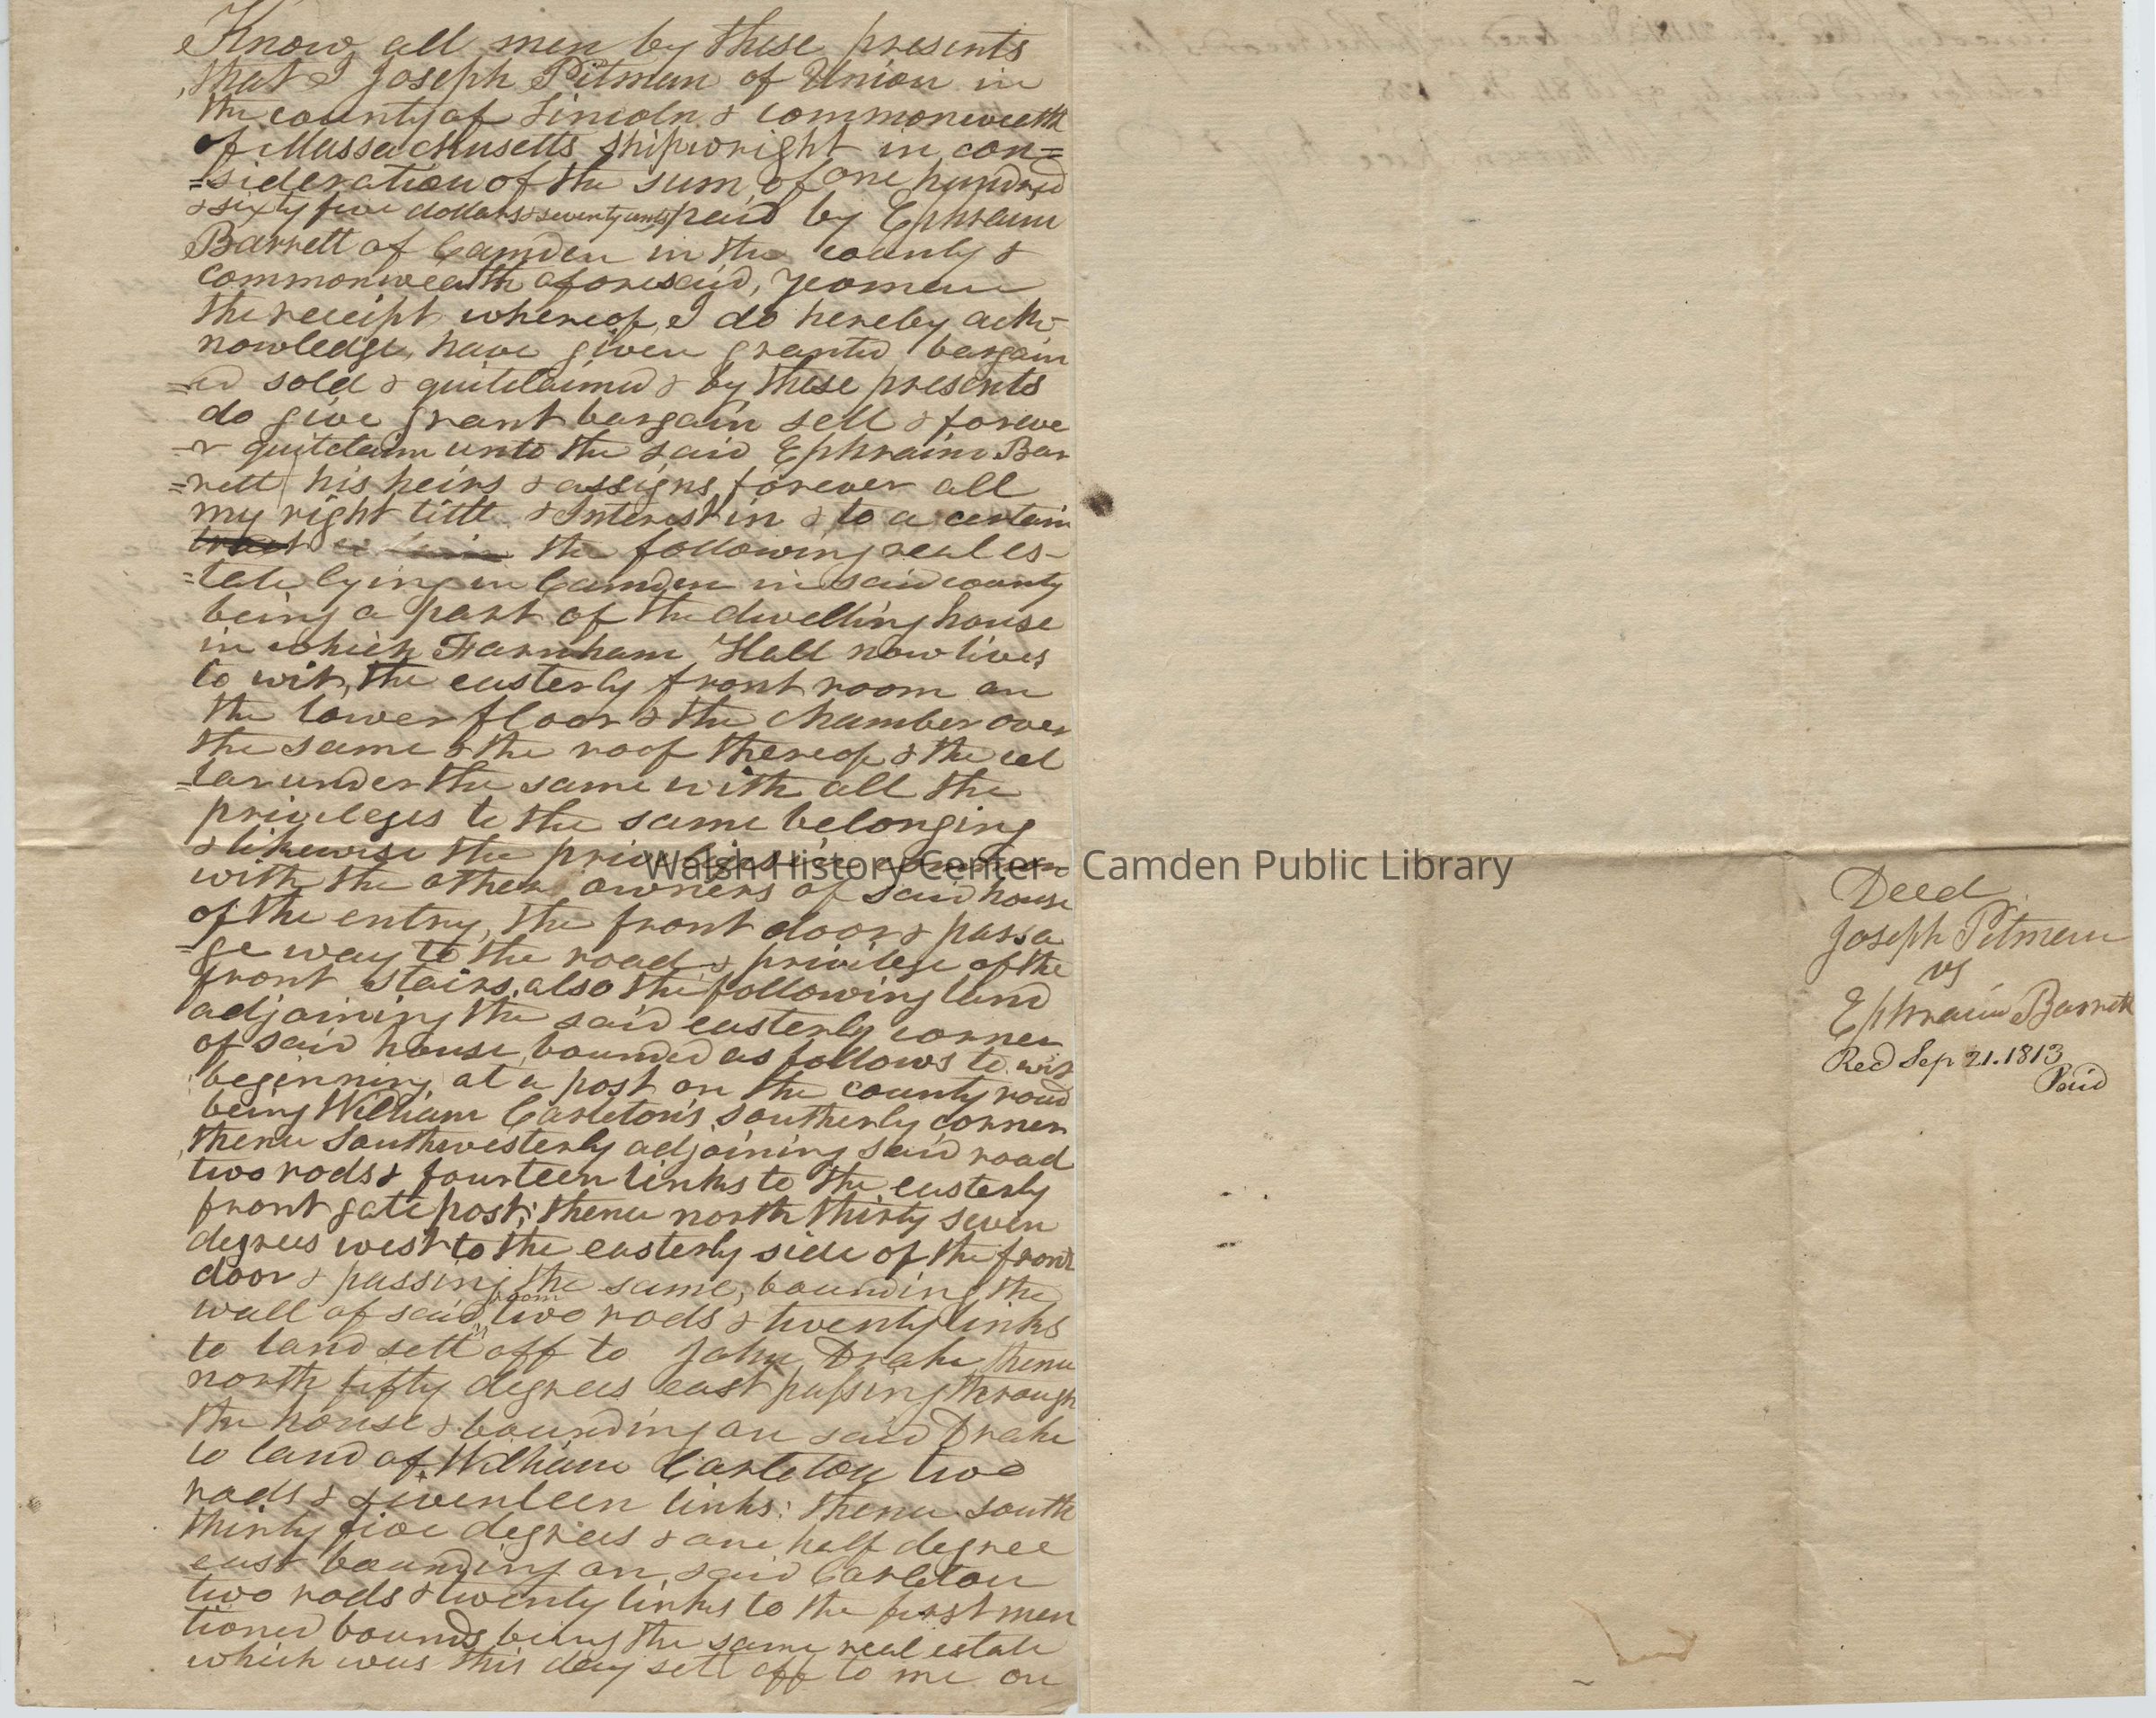 Know all men by these presents
that I Joseph Pitman of Union in
the county of Lincoln & commonwealth
of Massachusetts shipwright in con=
=sideration of the sum of one hundred
& sixty five dollars & seventy cents paid by Ephraim
Barrett of Camden in the county &
commonwealth aforesaid, yeoman
the receipt whereof I do hereby ack-
nowledge, have given granted bargain
=ed sold & quitclaimed & by these presents
do give grant bargain sell & foreve
=r quitclaim unto the said Ephraim Bar
=rett his heirs & assigns forever all
my right title & Interest in & to a certain
tract the following real es-
=tate lying in Camden in said county
being a part of the dwelling house
in which Farnham Hall now lives
to wit, the easterly front room on
the lower floor & the chamber over
the same & the roof thereof & the cel
=lar under the same with all the
privileges to the same belonging
& likewise the privileges in common
with the other owners of said house
of the entry, the front door & passa
=ge way to the road & privilege of the
front stairs, also the following land
adjoining the said easterly corner
of said house, bounded as follows to wit
beginning at a post on the county road
being William Carleton's southerly corner
thence Southwesterly adjoining said road
two rods & fourteen links to the easterly
front gate post; thence north thirty seven
degrees west to the easterly side of the front
door & passing the same, bounding the
wall of said room two rods & twenty links
to land sett off to John Drake thence
north fifty degrees east passing through
the house & bounding on said Drake
to land of William Carleton two
rods & seventeen links: thence south
thirty five degrees & one half degree
east bounding on said Carleton
two rods & twenty links to the first men
tioned bounds being the same real estate
which was this day sett off to me on
Walsh History Center - Camden Public Library
Deed
Joseph Pitman
vs
Ephraim Barrett
Recd Sep 21. 1813
Paid